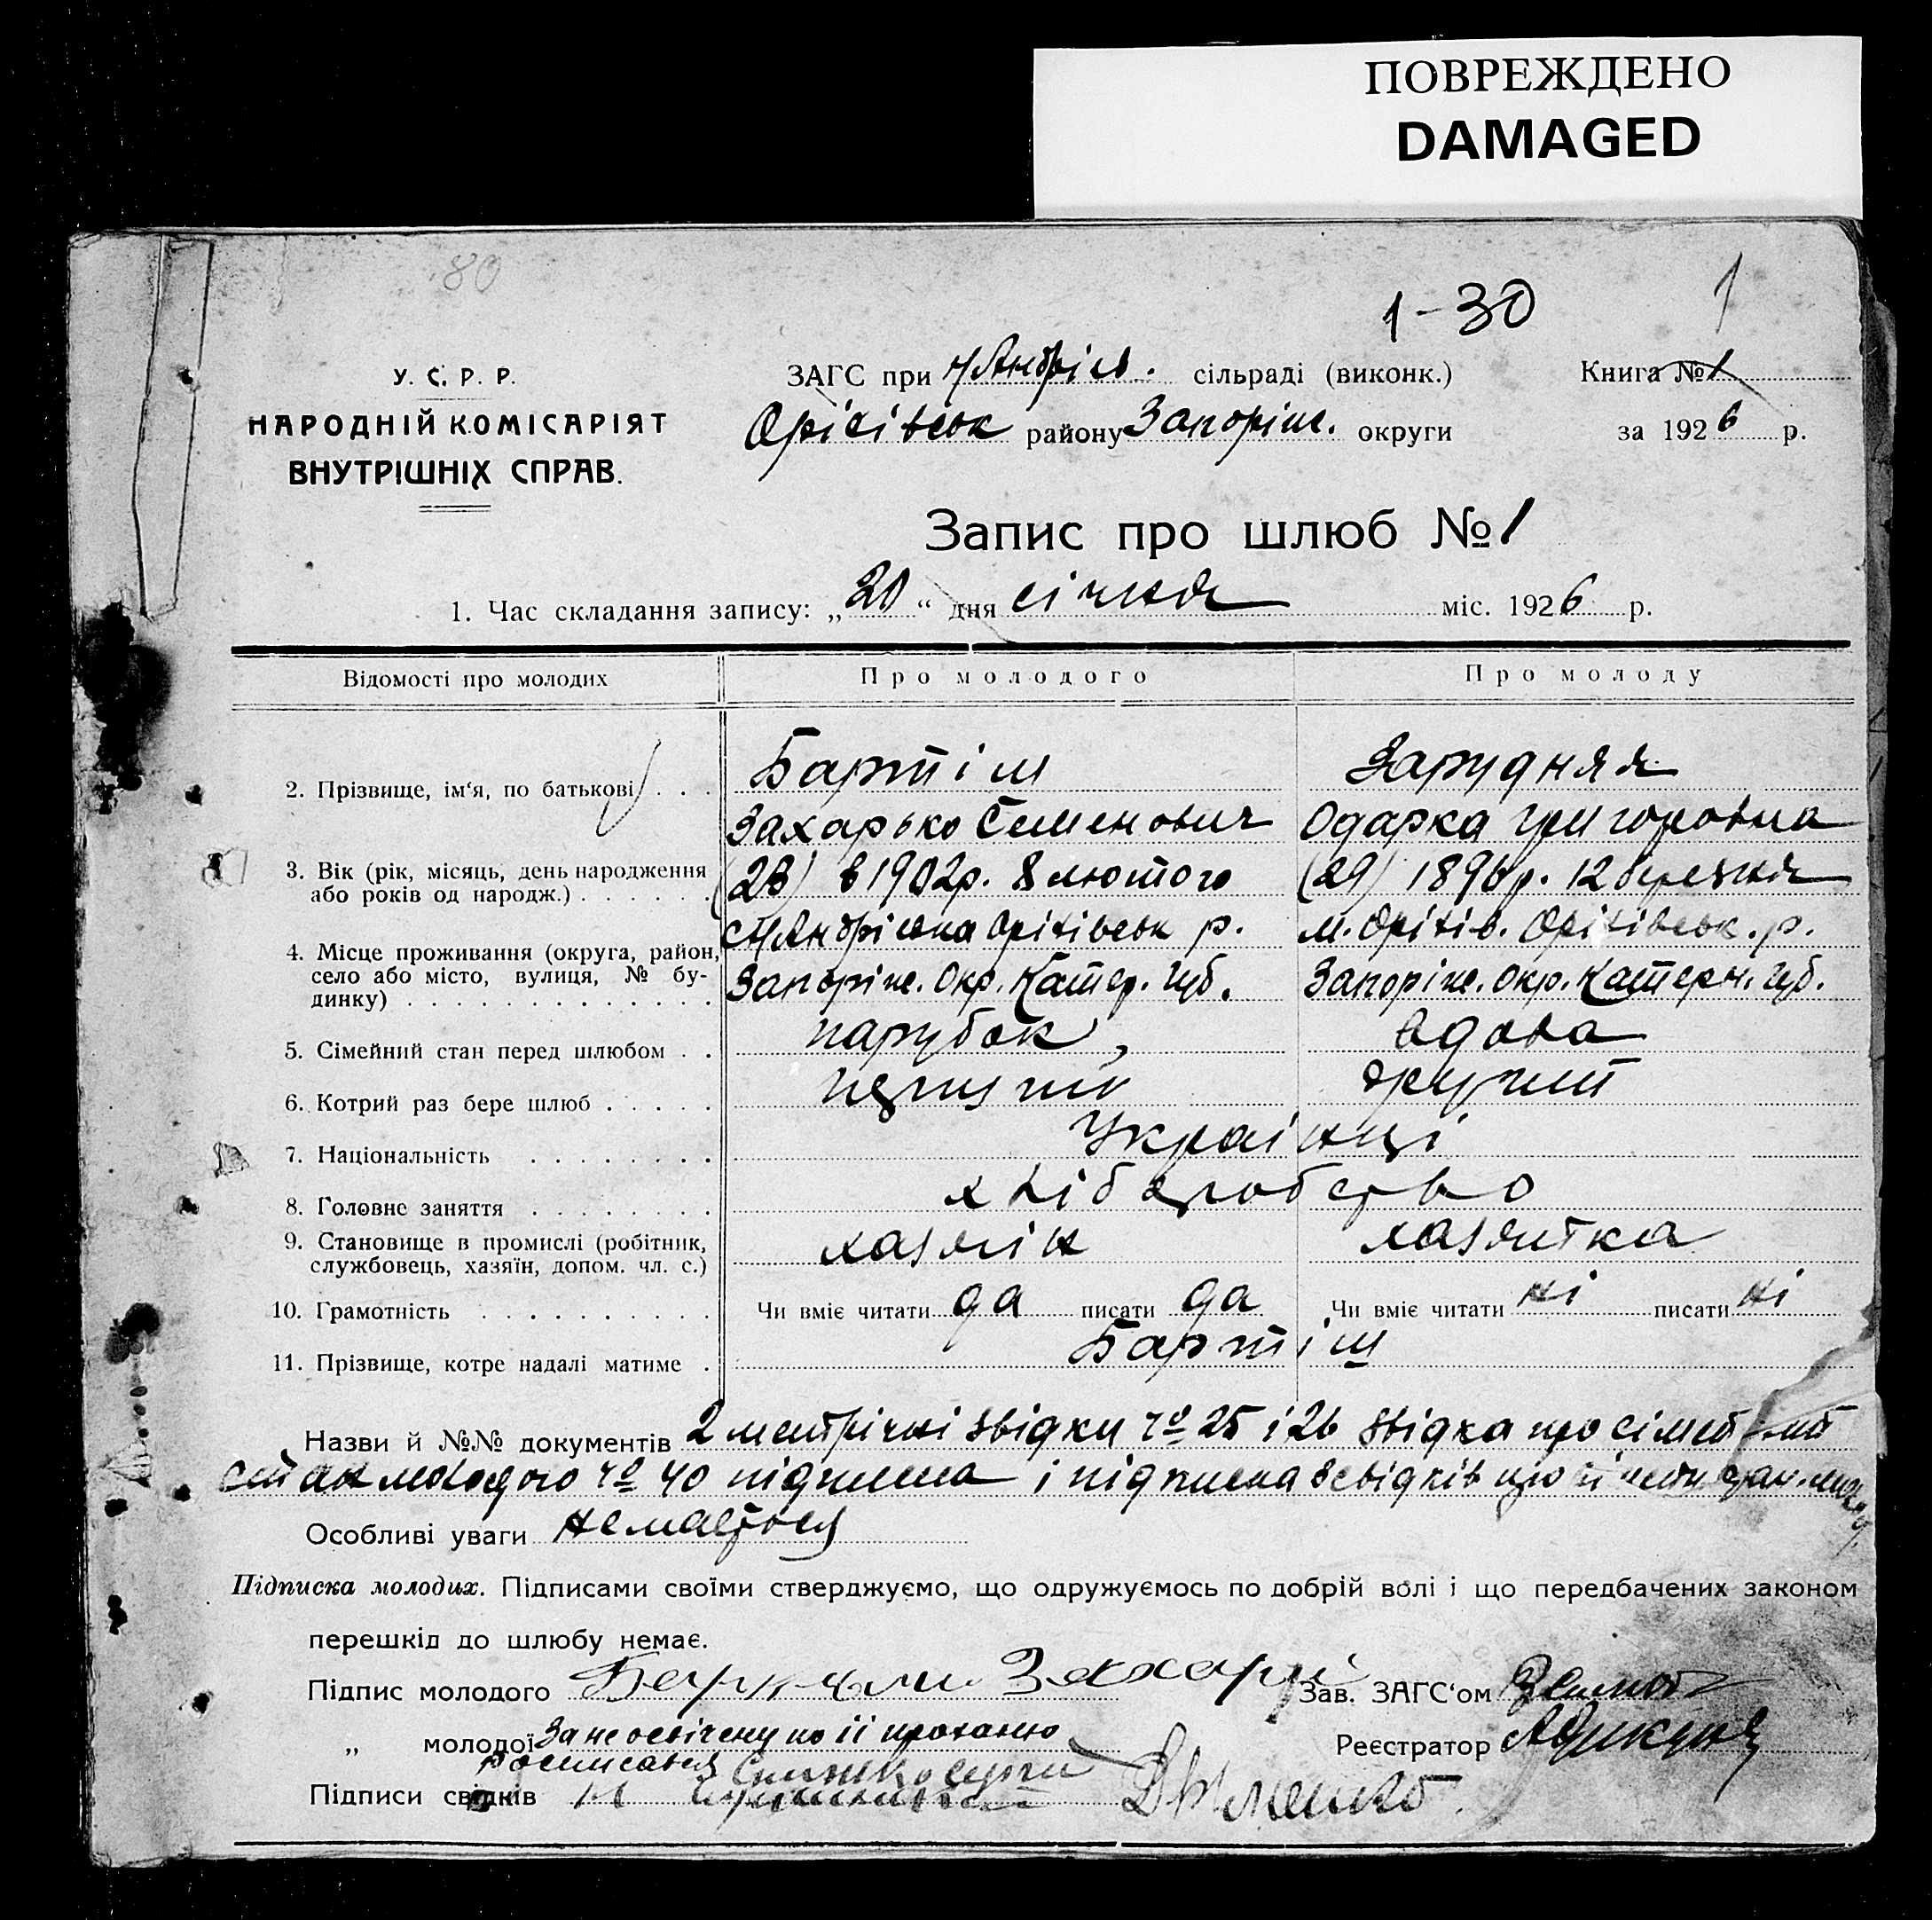 ПОВРЕЖДЕНО
DAMAGED
80
1-30
1
У. С. Р. Р.
НАРОДНІЙ КОМІСАРІЯТ
ВНУТРІШНІХ СПРАВ.
ЗАГС при Н/Андрієв. сільраді (виконк.)
Книга № 1
Оріхівськ району Запоріж. округи
за 1926 р.
Запис про шлюб № 1
1. Час складання запису: „20“ дня січня міс. 1926 р.
Відомості про молодих
Про молодого
Про молоду
2. Прізвище, ім‘я, по батькові . . .
Бартіш
Захарько Семенович
Зарудняя
Одарка Григоровна
3. Вік (рік, місяць, день народження
або років од народж.) . . . . . .
(23) в 1902р. 8 лютого
(29) 1896р. 12 березня
4. Місце проживання (округа, район,
село або місто, вулиця, № бу-
динку) . . . . . . . . . . . . .
с Н/Андрієвка Оріхівськ р.
Запоріж. Окр. Катер. Губ.
м. Оріхів. Оріхівськ. р.
Запоріж. Окр. Катерин. Губ.
5. Сімейний стан перед шлюбом . .
парубок,
вдова
6. Котрий раз бере шлюб . . . . .
первий
другий
7. Національність . . . . . . . .
Українці
8. Головне заняття . . . . . . . .
хліборобство
9. Становище в промислі (робітник,
службовець, хазяїн, допом. чл. с.)
хазяїн
хазяйка
10. Грамотність . . . . . . . . . .
Чи вміє читати да писати да
Чи вміє читати ні писати ні
11. Прізвище, котре надалі матиме .
Бартіш
Назви й №№ документів 2 метрічні звідки № 25 і 26 звідка про сімейний
стан молодого № 40 підписка і підписка свідків про сімейн стан
Особливі уваги немається
Підписка молодих. Підписами своїми стверджуємо, що одружуємось по добрій волі і що передбачених законом
перешкід до шлюбу немає.
Підпис молодого Захарій
Зав. ЗАГС‘ом
„ молодої За не освічену по її проханню
росписався
Реєстратор
Підписи свідків